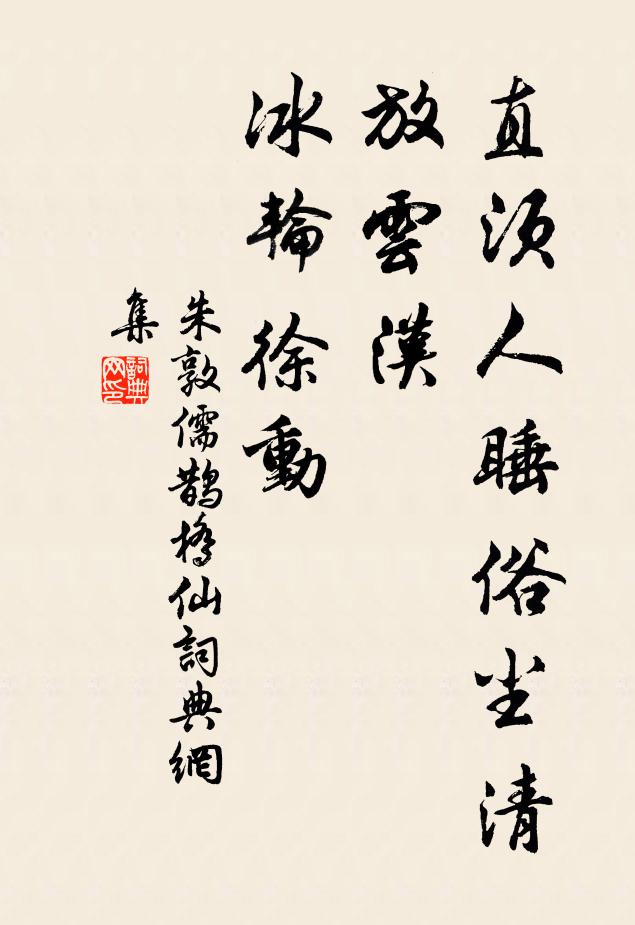 直須人睡俗尘清
放雲漢
冰輪徐動
朱敦儒鵲橋仙詞典網
集
詞典
网印